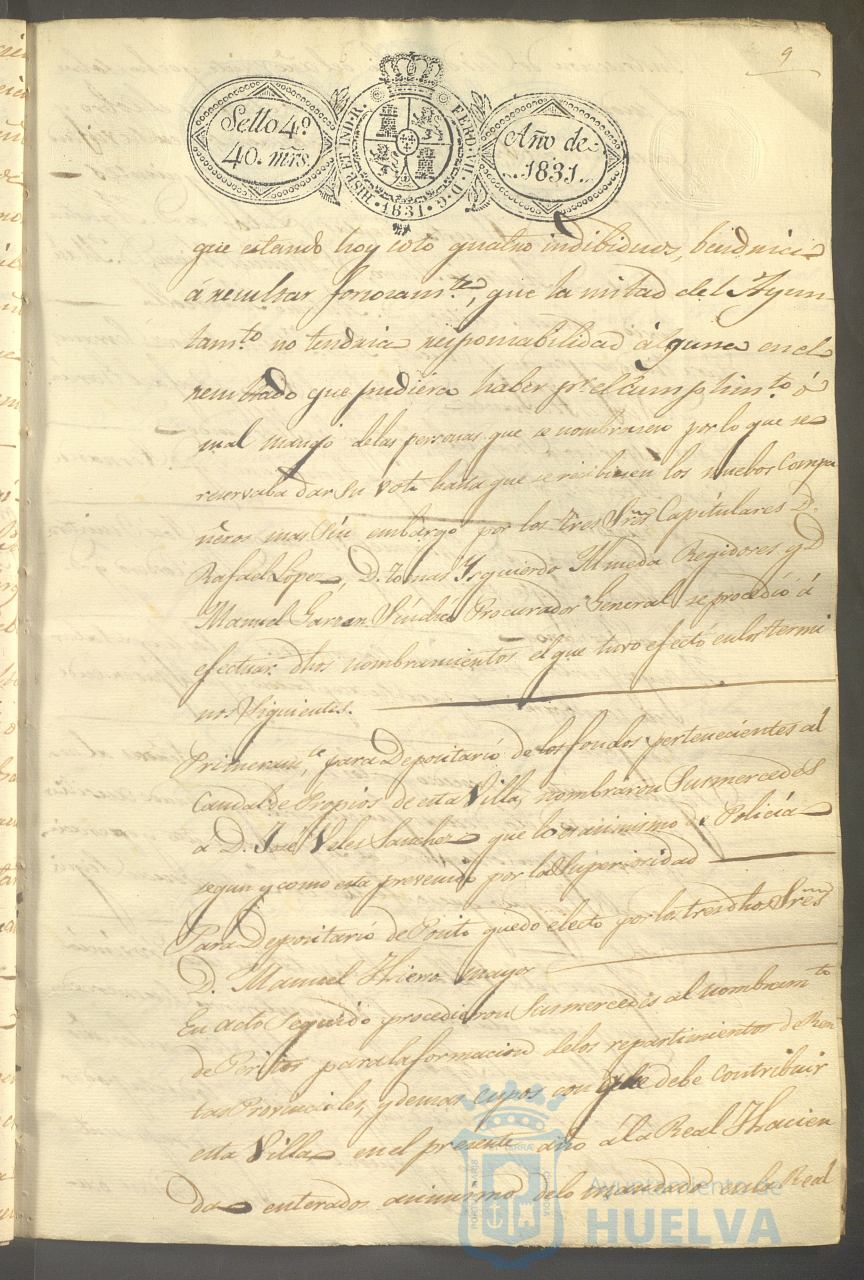 9
Sello 4º
40. mrs.
HISP. ET IND. R.
FERD. VII. D. G.
1831
Año de
1831.
que estando hoy solo quatro indibiduos, bendrica
á resultar forosamte, que la mitad del Ayun-
tamto no tendria responsabilidad álguna en el
resultado que pudiera haber pr el cumplimto ó
mal manejo delas personas que se nombrasen por lo que se
reservaba dar su voto hasta que se recibiesen los nuebos Compa
ñeros mas sin embargo por los tres Sres Capitulares D.
Rafael Lopez, D. Tomas Ysquierdo Almeda Regidores y D
Manuel Garzon Sindico Procurador General se procedió á
efectuar dhos nombramientos el que tuvo efectó en los termi
nos siguientes.
Primeramte para Depositarió de los fondos pertenecientes al
Caudal de Propios de esta Villa, nombraron Susmercedes
a D. José Veles Sanchez que lo es asimismo de Policía
segun y como esta prevenido por la Superioridad
Para Depositarió de Posito quedo electo por los tres dhos Sres
D. Manuel Hiero mayor
En acto seguido procedieron Susmercedes al nombramto
de Peritos para la formacion delos repartimientos de Ren
tas Provinciales, y demas cupos con que debe contribuir
esta Villa en el presente año á la Real Hacien
da enterados asimismo delo mandado en la Real
PORTUS MARIS ET TERRA CUSTODIA
Ayuntamiento de
HUELVA